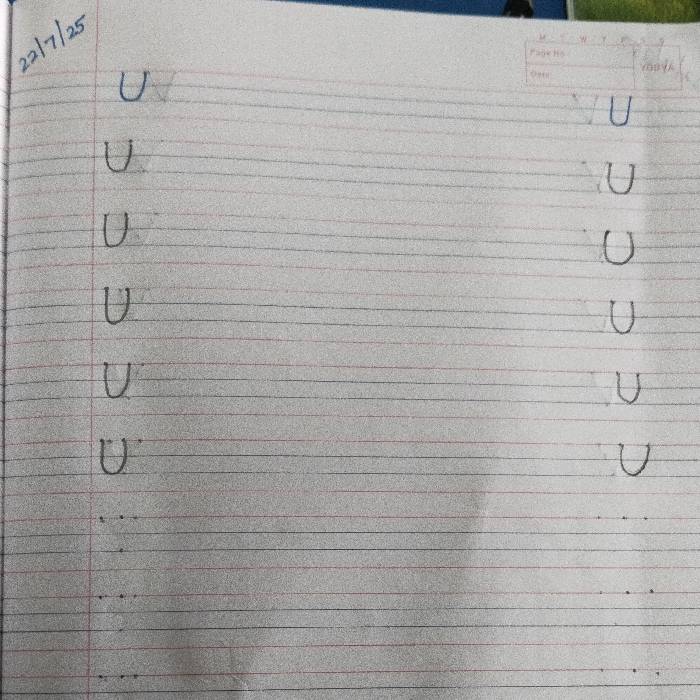 22/7/25
M T W T F S S
Page No.
Date:
YOUVA
U U
U U
U U
U U
U U
U U